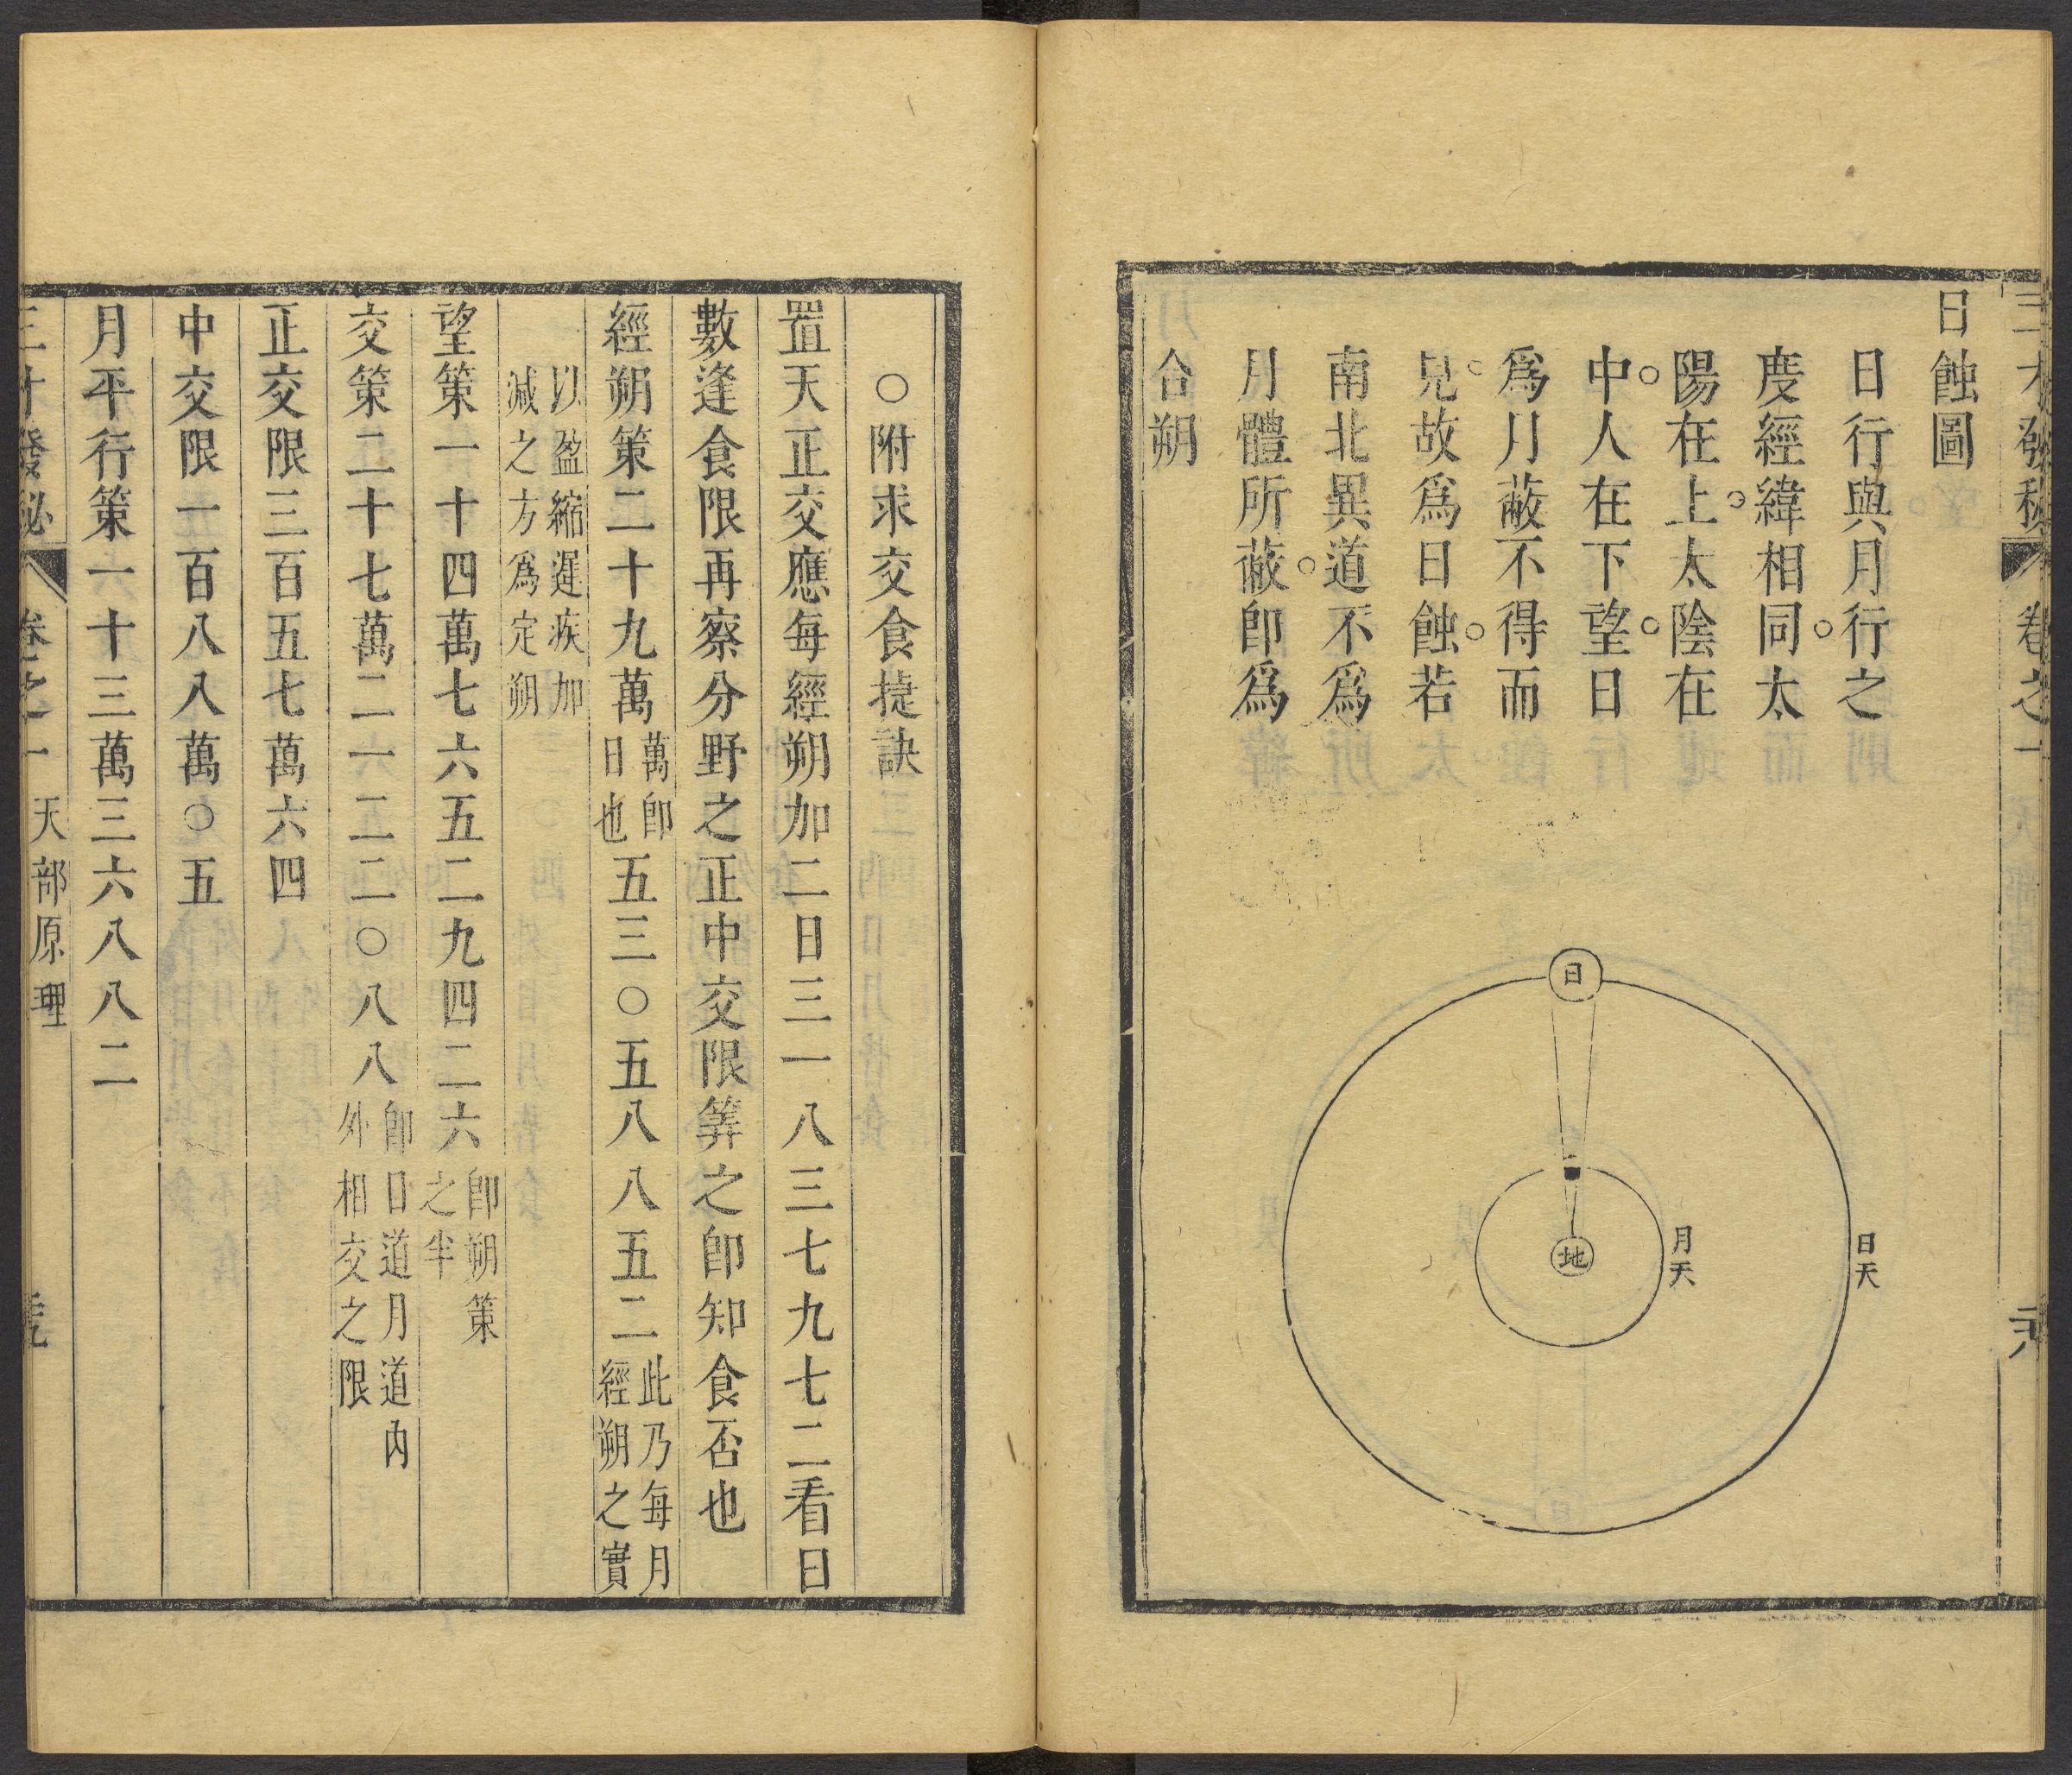 三才發秘 卷之一
日蝕圖
日行與月行之
度經緯相同太
陽在上太陰在
中人在下望日
爲月蔽不得而
見故爲日蝕若
南北異道不爲
月體所蔽卽爲
合朔
日
地
月天
日天
○附求交食捷訣
置天正交應每經朔加二日三一八三七九七二看日
數逢食限再察分野之正中交限筭之卽知食否也
經朔策二十九萬萬卽日也五三○五八八五二此乃每月經朔之實
以盈縮遲疾加減之方爲定朔
望策一十四萬七六五二九四二六卽朔策之半
交策二十七萬二一二二○八八卽日道月道內外相交之限
正交限三百五七萬六四
中交限一百八八萬○五
月平行策一十三萬三六八八二
三才發秘 卷之一 天部原理